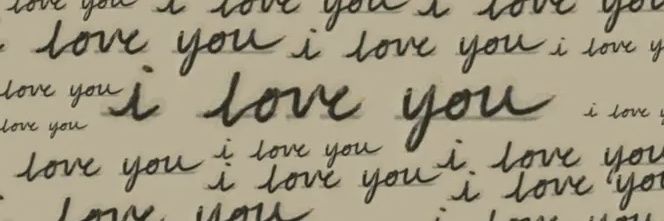 love you i love you i love you
love you i love you i love y
love you
i love you
i love y
love you
love you i love you i love you
i love you i love you
love you i love you